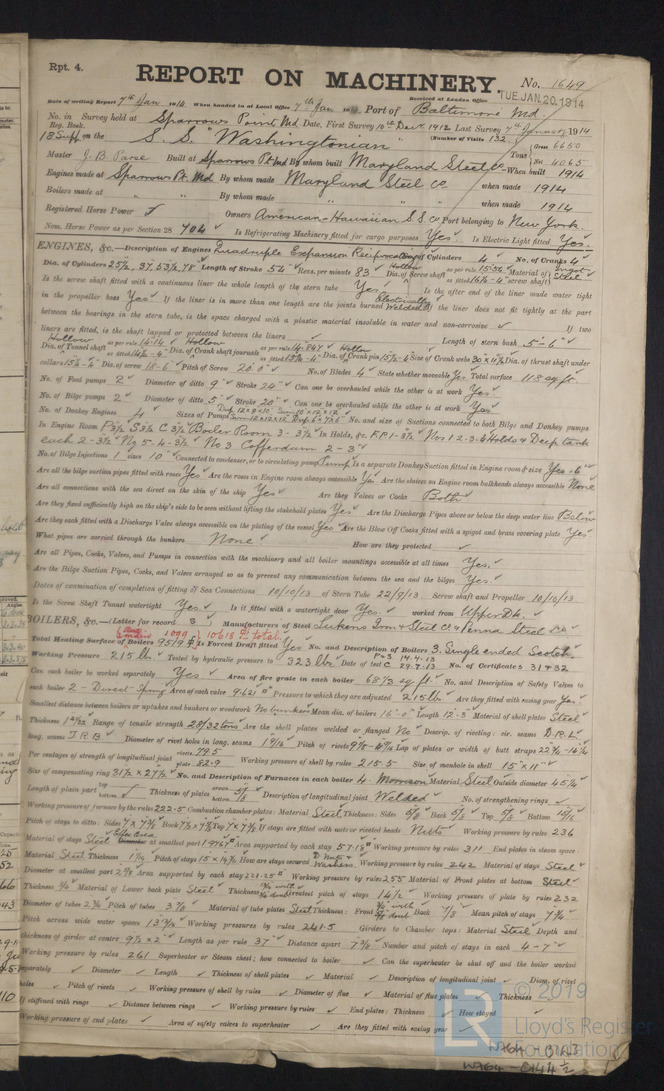 Rpt. 4.
REPORT ON MACHINERY.
No. 1649
TUE. JAN. 20. 1914
Date of writing Report 7th Jan 1914 When handed in at Local Office 7th Jan 19 Port of Baltimore Md
Received at London Office
No. in Survey held at Sparrows Point Md. Date, First Survey 10th Dect 1912 Last Survey 7th January 1914
Reg. Book.
18 Supp on the S. S. "Washingtonian" (Number of Visits 132
Tons Gross 6650 Net 4065
Master J. B. Built at Sparrows Pt. Md By whom built Maryland Steel Co When built 1914
Engines made at Sparrows Pt. Md By whom made Maryland Steel Co when made 1914
Boilers made at " " By whom made " " when made 1914
Registered Horse Power Owners American-Hawaiian S S Co Port belonging to New York
Nom. Horse Power as per Section 28 704 Is Refrigerating Machinery fitted for cargo purposes Yes. Is Electric Light fitted Yes.
ENGINES, &c.—Description of Engines Quadruple Expansion Reciprocating No. of Cylinders 4 No. of Cranks 4
Dia. of Cylinders 25½, 37, 53½, 78 Length of Stroke 54" Revs. per minute 83 Dia. of Screw shaft Hollow as per rule 15.36 as fitted Material of screw shaft Ingot Steel
Is the screw shaft fitted with a continuous liner the whole length of the stern tube Yes Is the after end of the liner made water tight
in the propeller boss Yes If the liner is in more than one length are the joints burned Electrically Welded If the liner does not fit tightly at the part
between the bearings in the stern tube, is the space charged with a plastic material insoluble in water and non-corrosive If two
liners are fitted, is the shaft lapped or protected between the liners Length of stern bush 5-6"
Hollow Dia. of Tunnel shaft as per rule 14.14 as fitted Hollow Dia. of Crank shaft journals as per rule 14.847 as fitted Hollow Dia. of Crank pin 15⅞-4" Size of Crank webs Dia. of thrust shaft under
collars 15⅞-4" Dia. of screw 18-6" Pitch of Screw 20'0" No. of Blades 4 State whether moveable Yes Total surface 118 sq ft.
No. of Feed pumps 2 Diameter of ditto 9" Stroke 24" Can one be overhauled while the other is at work Yes.
No. of Bilge pumps 2 Diameter of ditto 5" Stroke 20" Can one be overhauled while the other is at work Yes
No. of Donkey Engines 4 Sizes of Pumps No. and size of Suctions connected to both Bilge and Donkey pumps
In Engine Room P3½ S3½ C3½ Boiler Room 3-3½ In Holds, &c. F.P.1-3½ Nos 1.2.3.6 Holds & Deep tank
each 2-3½ No 5-4-3½ No 3 Cofferdam 2-3"
No. of Bilge Injections 1 sizes 10" Connected to condenser, or to circulating pump Pump Is a separate Donkey Suction fitted in Engine room & size Yes-6"
Are all the bilge suction pipes fitted with roses Yes Are the roses in Engine room always accessible Yes Are the sluices on Engine room bulkheads always accessible None
Are all connections with the sea direct on the skin of the ship Yes Are they Valves or Cocks Both
Are they fixed sufficiently high on the ship's side to be seen without lifting the stokehold plates Yes Are the Discharge Pipes above or below the deep water line Below
Are they each fitted with a Discharge Valve always accessible on the plating of the vessel Yes Are the Blow Off Cocks fitted with a spigot and brass covering plate Yes
What pipes are carried through the bunkers None How are they protected
Are all Pipes, Cocks, Valves, and Pumps in connection with the machinery and all boiler mountings accessible at all times Yes.
Are the Bilge Suction Pipes, Cocks, and Valves arranged so as to prevent any communication between the sea and the bilges Yes.
Dates of examination of completion of fitting of Sea Connections 10/10/13 of Stern Tube 22/9/13 Screw shaft and Propeller 10/10/13
Is the Screw Shaft Tunnel watertight Yes. Is it fitted with a watertight door Yes worked from Upper Dk.
BOILERS, &c.—(Letter for record S) Manufacturers of Steel Lukens Iron & Steel Co & Penna Steel Co
1099 10618 total
Total Heating Surface of Boilers 9519 Is Forced Draft fitted Yes No. and Description of Boilers 3. Single ended Scotch
Working Pressure 215 lbs Tested by hydraulic pressure to 323 lbs Date of test P & S 14.4.13 C 29.4.13 No. of Certificates 31 & 32
Can each boiler be worked separately Yes Area of fire grate in each boiler 68⅓ sq. ft. No. and Description of Safety Valves to
each boiler 2-Direct Spring Area of each valve 9.621 Pressure to which they are adjusted 215 lbs Are they fitted with easing gear Yes
Smallest distance between boilers or uptakes and bunkers or woodwork No bunkers Mean dia. of boilers 16'-0" Length 12-3 Material of shell plates Steel
Thickness Range of tensile strength 28/32 tons Are the shell plates welded or flanged No Descrip. of riveting: cir. seams D.R.L
long. seams T R B Diameter of rivet holes in long. seams Pitch of rivets Lap of plates or width of butt straps
Per centages of strength of longitudinal joint rivets 79.5 plate 82.9 Working pressure of shell by rules 215.5 Size of manhole in shell 15" x 11"
Size of compensating ring 31½ x 27½ No. and Description of Furnaces in each boiler 4. Morrison Material Steel Outside diameter 45¼
Length of plain part top bottom Thickness of plates crown bottom Description of longitudinal joint Welded No. of strengthening rings
Working pressure of furnace by the rules 222.5 Combustion chamber plates: Material Steel Thickness: Sides Back Top Bottom
Pitch of stays to ditto: Sides Back Top If stays are fitted with nuts or riveted heads Nuts Working pressure by rules 236
Material of stays Steel at smallest part 1.9767 Area supported by each stay 57.18 Working pressure by rules 311 End plates in steam space:
Material Steel Thickness Pitch of stays 15 x 14¾ How are stays secured D. Nuts & Washers Working pressure by rules 242 Material of stays Steel
Diameter at smallest part 2⅞ Area supported by each stay 221.25 Working pressure by rules 255 Material of Front plates at bottom Steel
Thickness Material of Lower back plate Steel Thickness Greatest pitch of stays 14½ Working pressure of plate by rules 232
Diameter of tubes 2¾ Pitch of tubes 3⅞ Material of tube plates Steel Thickness: Front Back ⅞ Mean pitch of stays
Pitch across wide water spaces Working pressures by rules 241.5 Girders to Chamber tops: Material Steel Depth and
thickness of girder at centre 9½ x 2" Length as per rule 37" Distance apart 7⅞ Number and pitch of stays in each 4-7"
Working pressure by rules 261 Superheater or Steam chest; how connected to boiler Can the superheater be shut off and the boiler worked
separately Diameter Length Thickness of shell plates Material Description of longitudinal joint Diam. of rivet
holes Pitch of rivets Working pressure of shell by rules Diameter of flue Material of flue plates Thickness
If stiffened with rings Distance between rings Working pressure by rules End plates: Thickness How stayed
Working pressure of end plates Area of safety valves to superheater Are they fitted with easing gear
© 2019
LR
Lloyd's Register
Foundation
W764-0143
W764-0144½